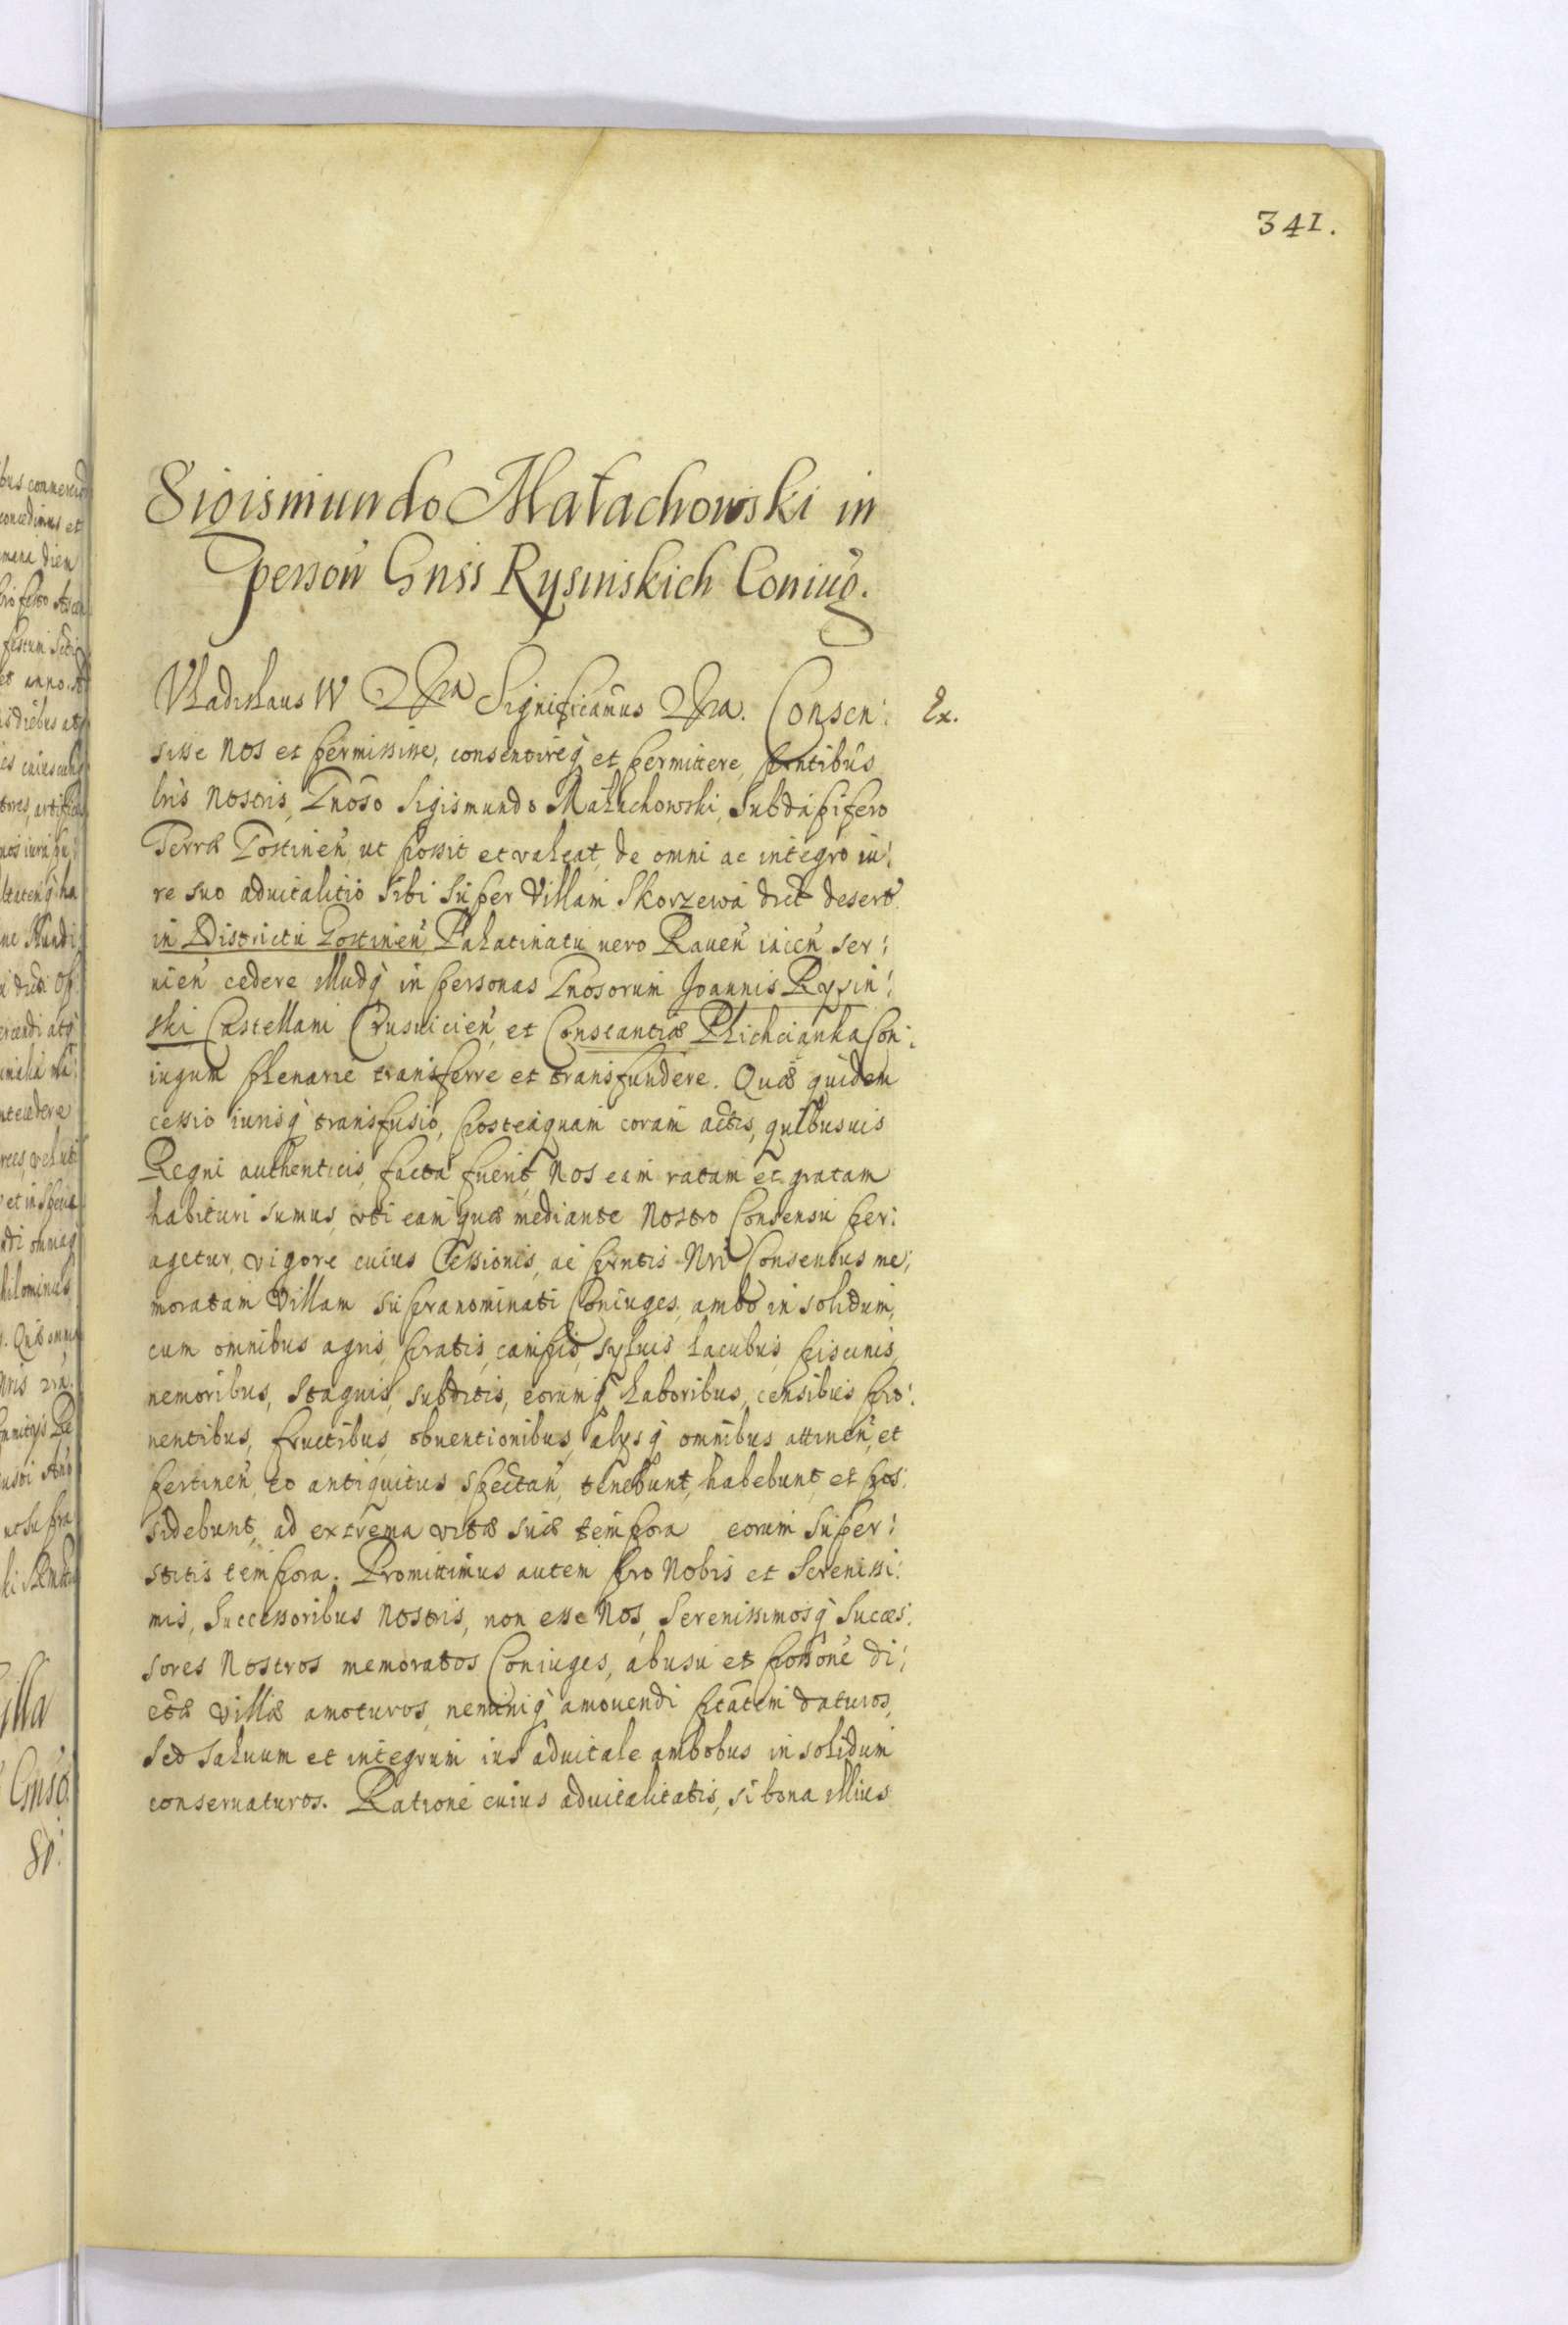 341.
Sigismundo Małachowski in
person̄ Gnss Rysinskich Coniug̃.
Vladislaus IV Significamus Consen: Ex.
sisse Nos et permississe, consentireq́ et permittere, pr̃ntibus
lr̃is Nostris, Gnoso Sigismundo Małachowski, Subdapifero
Terræ Gostinen̄, ut possit et valeat, de omni ac integro iu:
re suo aduitalitio sibi super Villam Skorzewa dict desert
in Districtu Gostinen̄, Palatinatu vero Rauen̄ iacen̄ ser:
uien̄ cedere illudq́ in personas Gnosorum Joannis Rysin:
ski Castellani Crusuicien̄, et Constantiæ Plichcianka Con:
iugum plenarie transferre et transfundere. Quæ quidem
cessio iurisq́ transfusio, posteaquam coram actis, quibusuis
Regni authenticis, facta fuerit, Nos eam ratam et gratam
habituri sumus, uti eam quæ mediante Nostro Consensu per:
agetur, vigore cuius Cessionis, ac pr̃ntis Nr̃i Consensus me:
moratam Villam supranominati Coniuges, ambo in solidum,
cum omnibus agris, pratis, campis, syluis lacubus, piscinis,
nemoribus, stagnis, subditis, eorumq́ laboribus, censibus pro:
uentibus, fructibus, obuentionibus, alysq́ omnibus attinen̄, et
pertinen̄, eo antiquitus spectan̄, tenebunt, habebunt, et pos:
sidebunt, ad extrema vitæ suæ tempora eorum super:
stitis tempora. Promittimus autem pro Nobis et Serenissi:
mis, Successoribus Nostris, non esse Nos, Serenissimosq́ Succes:
sores Nostros memoratos Coniuges, ab usu et possõne di:
ctæ villæ amoturos, neminiq́ amouendi ptãtem daturos,
sed saluum et integrum ius aduitale ambobus in solidum
conseruaturos. Ratione cuius aduitalitatis, si bona illius